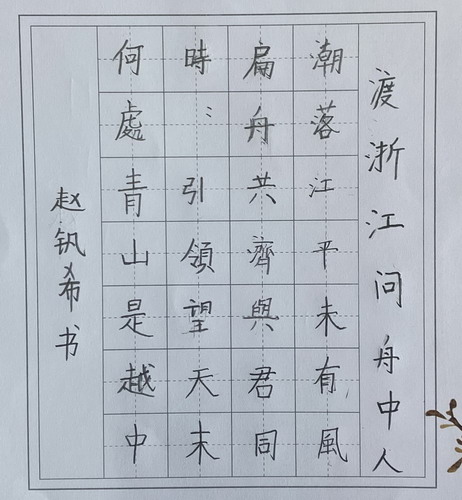 渡浙江问舟中人
潮落江平未有風
扁舟共濟與君同
時〻引領望天末
何處青山是越中
赵钒希书